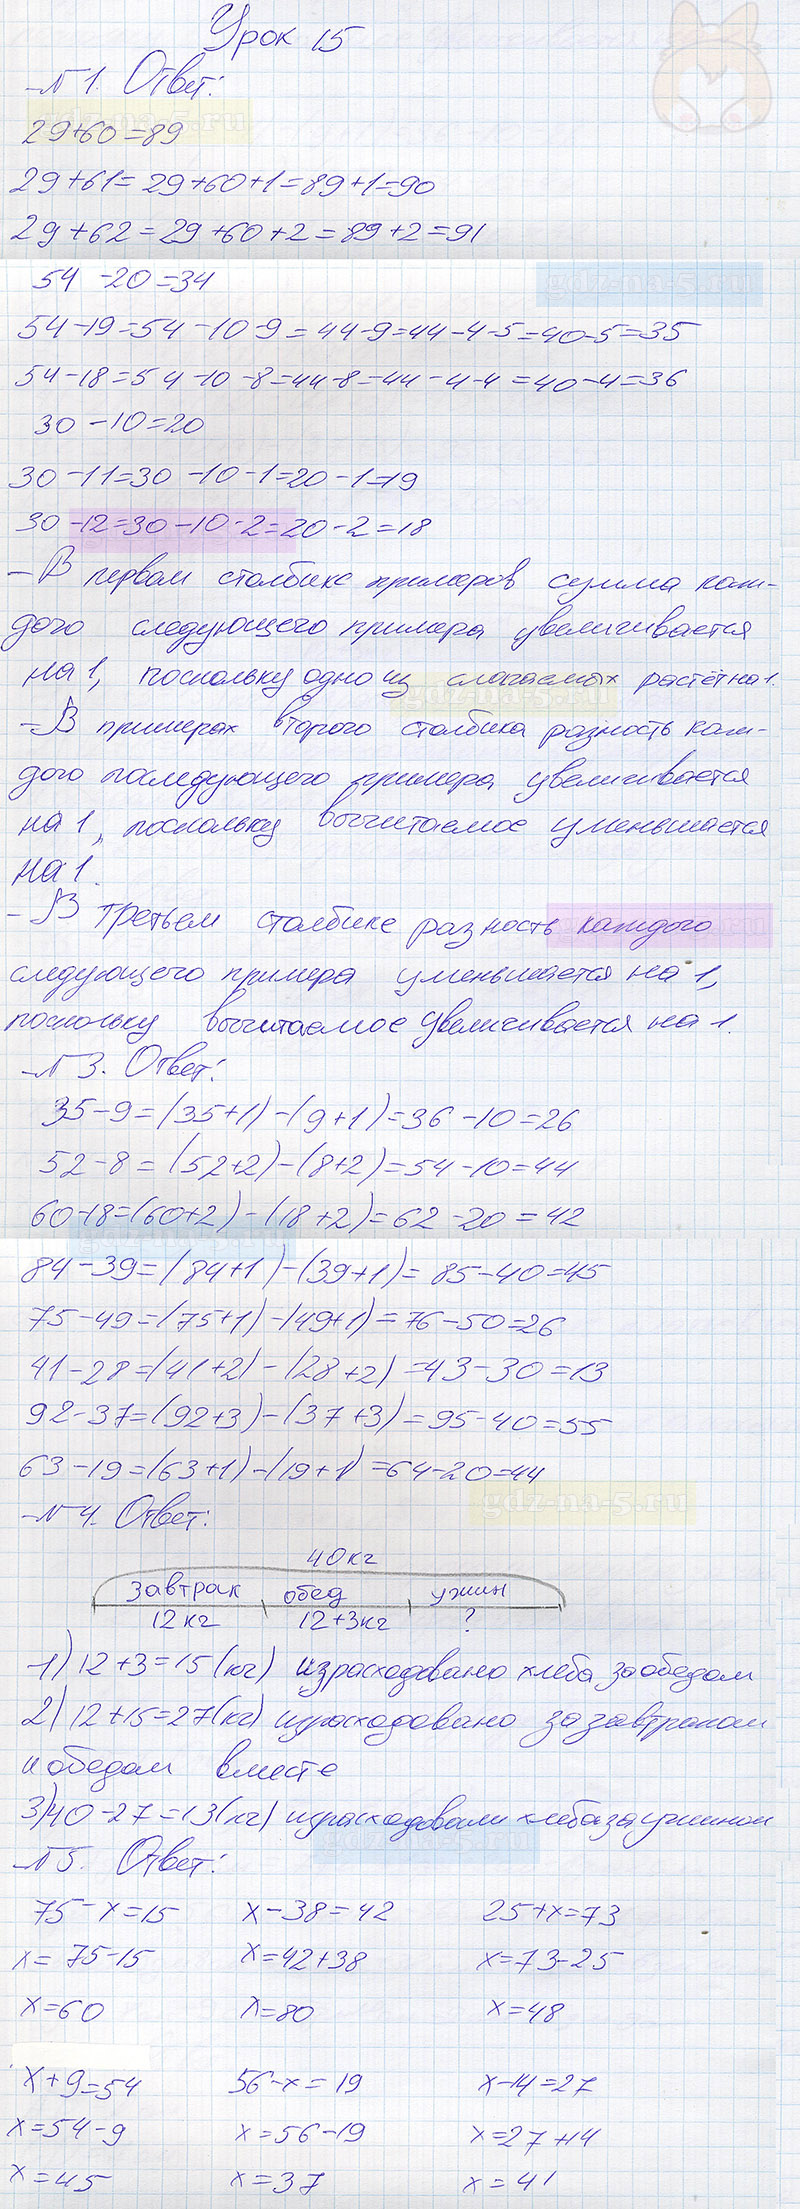 Урок 15
№1. Ответ:
29+60=89
29+61=29+60+1=89+1=90
29+62=29+60+2=89+2=91
54-20=34
54-19=54-10-9=44-9=44-4-5=40-5=35
54-18=54-10-8=44-8=44-4-4=40-4=36
30-10=20
30-11=30-10-1=20-1=19
30-12=30-10-2=20-2=18
- В первом столбике примеров сумма каж-
дого следующего примера увеличивается
на 1, поскольку одно из слагаемых растёт на 1.
- В примерах второго столбика разность каж-
дого последующего примера увеличивается
на 1, поскольку вычитаемое уменьшается
на 1.
- В третьем столбике разность каждого
следующего примера уменьшается на 1,
поскольку вычитаемое увеличивается на 1.
№3. Ответ:
35-9=(35+1)-(9+1)=36-10=26
52-8=(52+2)-(8+2)=54-10=44
60-18=(60+2)-(18+2)=62-20=42
84-39=(84+1)-(39+1)=85-40=45
75-49=(75+1)-(49+1)=76-50=26
41-28=(41+2)-(28+2)=43-30=13
92-37=(92+3)-(37+3)=95-40=55
63-19=(63+1)-(19+1)=64-20=44
№4. Ответ:
40кг
завтрак обед ужин
12кг 12+3кг ?
1) 12+3=15(кг) израсходовано хлеба за обедом
2) 12+15=27(кг) израсходовано за завтраком
и обедом вместе
3) 40-27=13(кг) израсходовали хлеба за ужином
№5. Ответ:
75-x=15 x-38=42 25+x=73
x=75-15 x=42+38 x=73-25
x=60 x=80 x=48
x+9=54 56-x=19 x-14=27
x=54-9 x=56-19 x=27+14
x=45 x=37 x=41
gdz-na-5.ru
gdz-na-5.ru
gdz-na-5.ru
gdz-na-5.ru
gdz-na-5.ru
gdz-na-5.ru